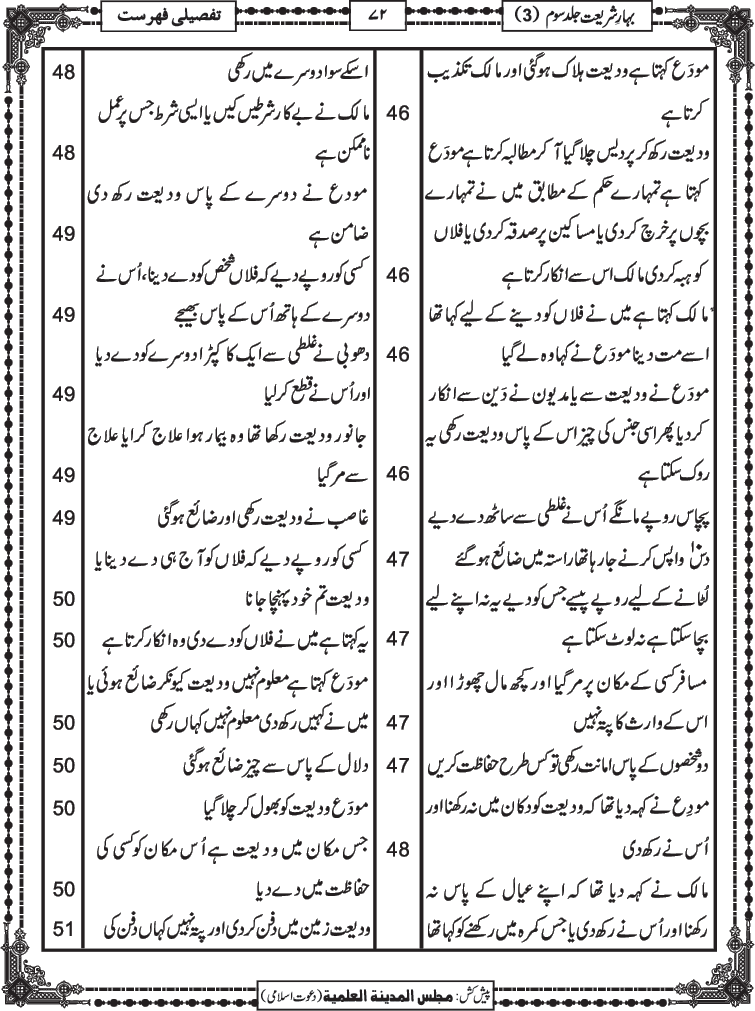 بہارِ شریعت جلد سوم (3)
۷۲
تفصیلی فہرست
مودَع کہتا ہے ودیعت ہلاک ہوگئی اور مالک تکذیب
کرتا ہے 46
ودیعت رکھ کر پردیس چلا گیا آ کر مطالبہ کرتا ہے مودَع
کہتا ہے تمہارے حکم کے مطابق میں نے تمہارے
بچوں پر خرچ کردی یا مساکین پر صدقہ کردی یا فلاں
کو ہبہ کردی مالک اس سے انکار کرتا ہے 46
مالک کہتا ہے میں نے فلاں کو دینے کے لیے کہا تھا
اسے مت دینا مودَع نے کہا وہ لے گیا 46
مودَع نے ودیعت سے یا مدیون نے دَین سے انکار
کردیا پھر اسی جنس کی چیز اس کے پاس ودیعت رکھی یہ
روک سکتا ہے 46
پچاس روپے مانگے اُس نے غلطی سے ساٹھ دے دیے
دس واپس کرنے جارہا تھا راستہ میں ضائع ہوگئے 47
لُٹانے کے لیے روپے پیسے جس کو دیے یہ نہ اپنے لیے
بچا سکتا ہے نہ لوٹ سکتا ہے 47
مسافر کسی کے مکان پر مرگیا اور کچھ مال چھوڑا اور
اس کے وارث کا پتہ نہیں 47
دو شخصوں کے پاس امانت رکھی تو کس طرح حفاظت کریں 47
مودِع نے کہہ دیا تھا کہ ودیعت کو دکان میں نہ رکھنا اور
اُس نے رکھ دی 48
مالک نے کہہ دیا تھا کہ اپنے عیال کے پاس نہ
رکھنا اور اُس نے رکھ دی یا جس کمرہ میں رکھنے کو کہا تھا
اسکے سوا دوسرے میں رکھی 48
مالک نے بے کار شرطیں کیں یا ایسی شرط جس پر عمل
ناممکن ہے 48
مودع نے دوسرے کے پاس ودیعت رکھ دی
ضامن ہے 49
کسی کو روپے دیے کہ فلاں شخص کو دے دینا، اُس نے
دوسرے کے ہاتھ اُس کے پاس بھیجے 49
دھوبی نے غلطی سے ایک کا کپڑا دوسرے کو دے دیا
اور اُس نے قطع کرلیا 49
جانور ودیعت رکھا تھا وہ بیمار ہوا علاج کرایا علاج
سے مرگیا 49
غاصب نے ودیعت رکھی اور ضائع ہوگئی 49
کسی کو روپے دیے کہ فلاں کو آج ہی دے دینا یا
ودیعت تم خود پہنچا جانا 50
یہ کہتا ہے میں نے فلاں کو دے دی وہ انکار کرتا ہے 50
مودَع کہتا ہے معلوم نہیں ودیعت کیونکر ضائع ہوئی یا
میں نے کہیں رکھ دی معلوم نہیں کہاں رکھی 50
دلال کے پاس سے چیز ضائع ہوگئی 50
مودَع ودیعت کو بھول کر چلا گیا 50
جس مکان میں ودیعت ہے اُس مکان کو کسی کی
حفاظت میں دے دیا 50
ودیعت زمین میں دفن کردی اور پتہ نہیں کہاں دفن کی 51
پیش کش: مجلس المدینۃ العلمیۃ (دعوت اسلامی)